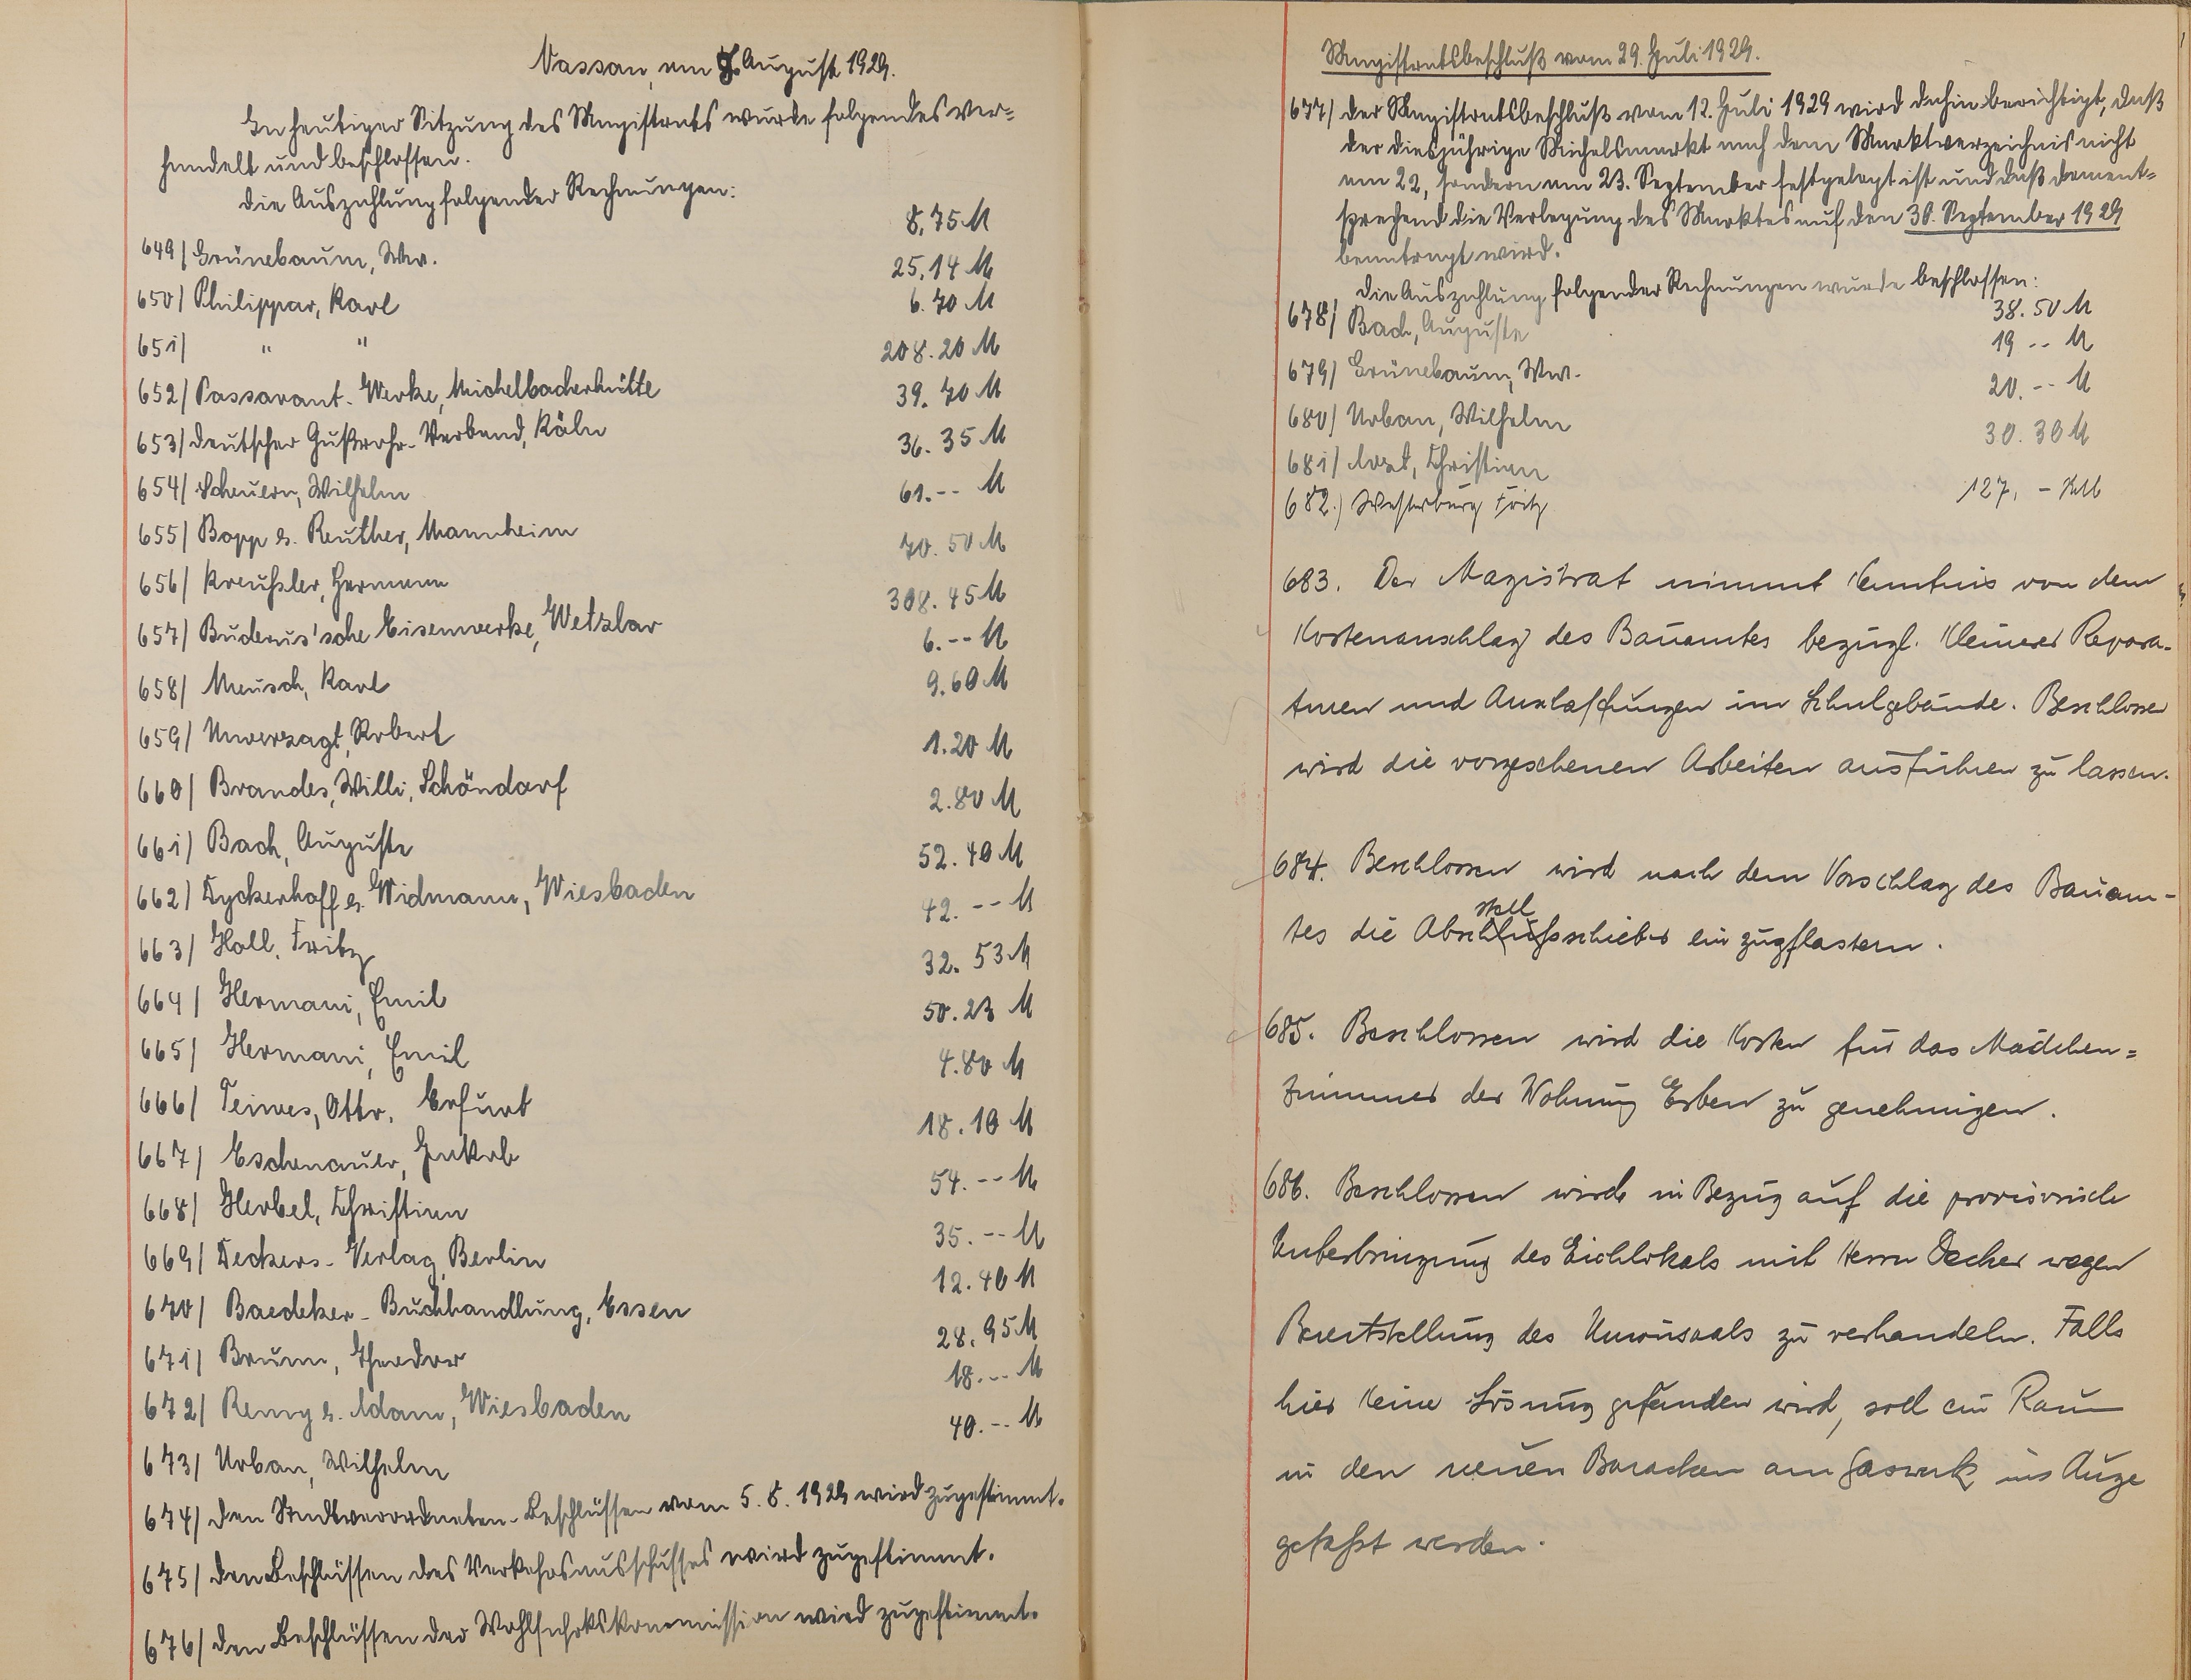 Nassau, am 7. August 1929.
In heutiger Sitzung des Magistrats wurde folgendes ver=
handelt und beschlossen.
Die Auszahlung folgender Rechnungen:
649/ Grünebaum, Ww. 8,75 M
650/ Philippar, Karl 25,14 M
651/ " " 6.70 M
652/ Passavant-Werke, Michelbacherhütte 208.20 M
653/ Deutscher Gußrohr-Verband, Köln 39.70 M
654/ Scheuern, Wilhelm 36.35 M
655/ Bopp & Reuther, Mannheim 61.-- M
656/ Kreußler, Hermann 70.50 M
657/ Buderus'sche Eisenwerke, Wetzlar 308.45 M
658/ Meusch, Karl 6.-- M
659/ Unverzagt, Robert 9.60 M
660/ Brandes, Willi, Schöndorf 1.20 M
661/ Bach, Auguste 2.80 M
662/ Dyckerhoff & Widmann, Wiesbaden 52.40 M
663/ Holl, Fritz 42.-- M
664/ Hermani, Emil 32.53 M
665/ Hermani, Emil 50.23 M
666/ Otto, Erfurt 4.80 M
667/ Eschenauer, Jakob 18.10 M
668/ Herbel, Christian 54.-- M
669/ Deckers-Verlag, Berlin 35.-- M
670/ Baedeker-Buchhandlung, Essen 12.40 M
671/ Bruun, Theodor 28.95 M
672/ Remy & Adam, Wiesbaden 18.-- M
673/ Urban, Wilhelm 40.-- M
674/ Den Stadtverordneten-Beschlüssen vom 5.8.1929 wird zugestimmt.
675/ Den Beschlüssen des Verkehrsausschusses wird zugestimmt.
676/ Den Beschlüssen der Wohlfahrtskommission wird zugestimmt.
Magistratsbeschluß vom 29. Juli 1929.
677/ Der Magistratsbeschluß vom 12. Juli 1929 wird dahin berichtigt, daß
der diesjährige Michelsmarkt nach dem Marktverzeichnis nicht
am 22, sondern am 23. September festgelegt ist und daß dement=
sprechend die Verlegung des Marktes auf den 30. September 1929
beantragt wird.
Die Auszahlung folgender Rechnungen wurde beschlossen:
678/ Bach, Auguste 38.50 M
679/ Grünebaum, Ww. 19 -- M
680/ Urban, Wilhelm 20.-- M
681/ Christian 30.30 M
682.) Westerburg Fritz 127,- RM
683. Der Magistrat nimmt Kenntnis von dem
Kostenanschlag des Bauamtes bezügl. kleiner Repara-
turen und im Schulgebäude. Beschlossen
wird die vorgesehenen Arbeiten ausführen zu lassen.
684. Beschlossen wird nach dem Vorschlag des Bauam-
stell
tes die Abschlußschieber ein zupflastern.
685. Beschlossen wird die Kosten für das Mädchen=
zimmer der Wohnung Erben zu genehmigen.
686. Beschlossen wird in Bezug auf die provisorische
Unterbringung des Eichlokals mit Herrn Decker wegen
Bereitstellung des Unionsaals zu verhandeln. Falls
hier keine Lösung gefunden wird, soll ein Raum
in den neuen Baracken am Gaswerk ins Auge
gefaßt werden.